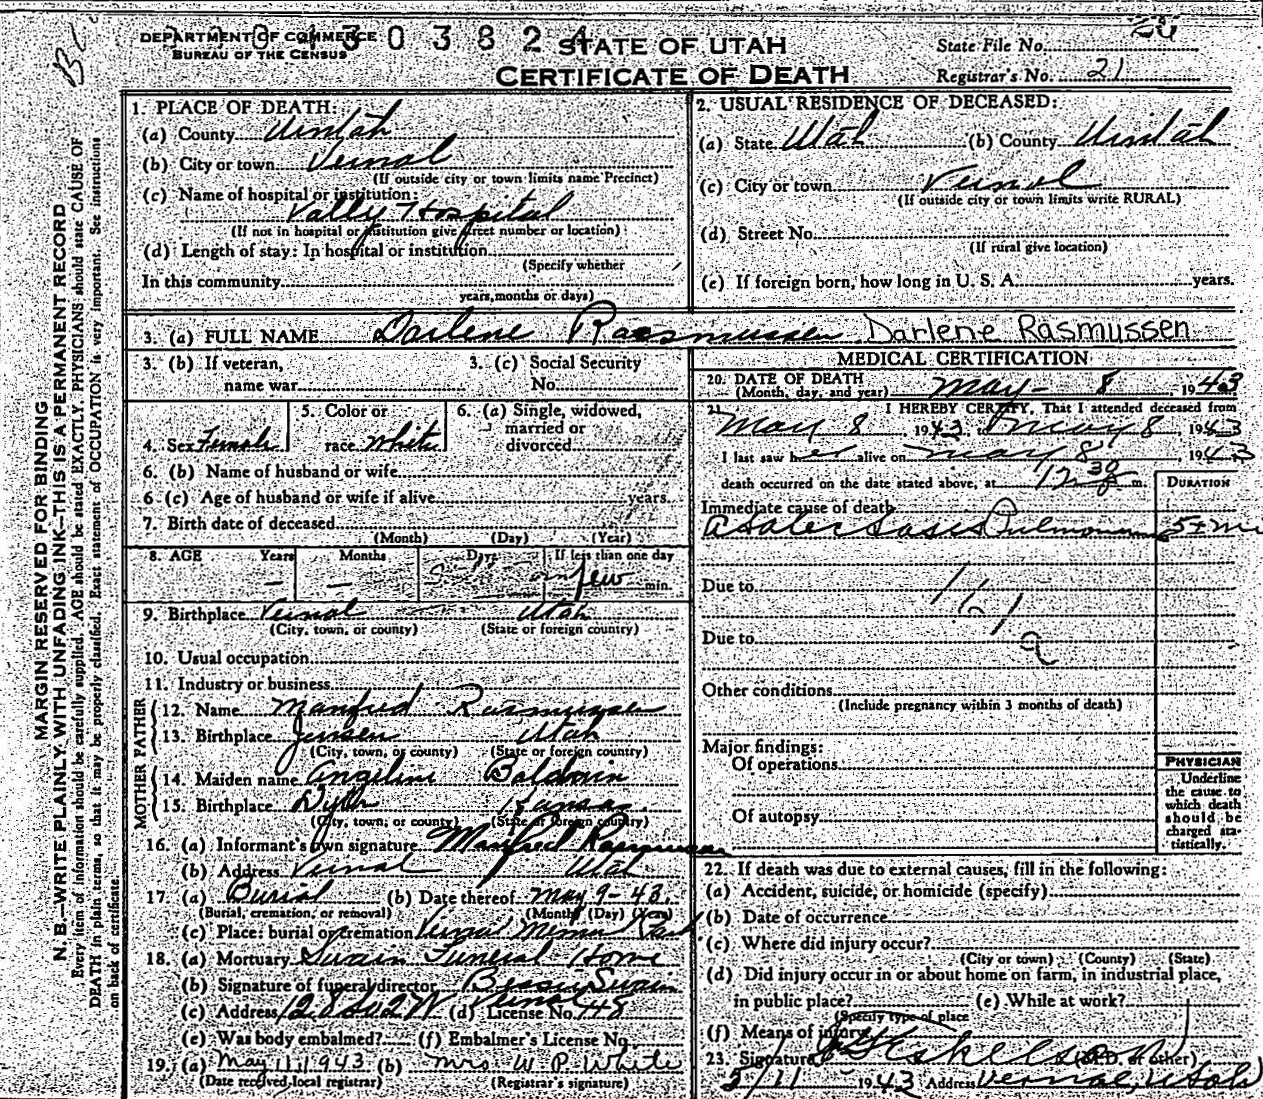 DEPARTMENT OF COMMERCE
BUREAU OF THE CENSUS
0 1 3 0 3 8 2 4
STATE OF UTAH
CERTIFICATE OF DEATH
State File No. 20
Registrar's No. 21
MARGIN RESERVED FOR BINDING
N. B.—WRITE PLAINLY WITH UNFADING INK—THIS IS A PERMANENT RECORD
Every item of information should be carefully supplied. AGE should be stated EXACTLY. PHYSICIANS should state CAUSE OF
DEATH in plain terms, so that it may be properly classified. Exact statement of OCCUPATION is very important. See instructions
on back of certificate
1. PLACE OF DEATH:
(a) County Uintah
(b) City or town Vernal
(If outside city or town limits name Precinct)
(c) Name of hospital or institution:
Vally Hospital
(If not in hospital or institution give street number or location)
(d) Length of stay: In hospital or institution
(Specify whether
In this community
years, months or days)
2. USUAL RESIDENCE OF DECEASED:
(a) State Utah (b) County Uintah
(c) City or town Vernal
(If outside city or town limits write RURAL)
(d) Street No.
(If rural give location)
(e) If foreign born, how long in U. S. A. years.
3. (a) FULL NAME Darlene Rasmussen Darlene Rasmussen
3. (b) If veteran,
name war
3. (c) Social Security
No.
4. Sex Female
5. Color or
race White
6. (a) Single, widowed,
married or
divorced
6. (b) Name of husband or wife
6 (c) Age of husband or wife if alive years
7. Birth date of deceased
(Month) (Day) (Year)
8. AGE Years Months Days If less than one day
— — few min.
9. Birthplace Vernal Utah
(City, town, or county) (State or foreign country)
10. Usual occupation
11. Industry or business
FATHER
12. Name Manfred Rasmussen
13. Birthplace Jensen Utah
(City, town, or county) (State or foreign country)
MOTHER
14. Maiden name Angeline Baldwin
15. Birthplace Kansas
(City, town, or county) (State or foreign country)
16. (a) Informant's own signature Manfred Rasmussen
(b) Address Vernal Utah
17. (a) Burial (b) Date thereof May 9-43
(Burial, cremation, or removal) (Month) (Day) (Year)
(c) Place: burial or cremation Vernal Memor Park
18. (a) Mortuary Swain Funeral Home
(b) Signature of funeral director Swain
(c) Address Vernal (d) License No. 48
(e) Was body embalmed? (f) Embalmer's License No.
19. (a) May 11, 1943 (b) Mrs W P White
(Date received local registrar) (Registrar's signature)
MEDICAL CERTIFICATION
20. DATE OF DEATH
(Month, day, and year) May - 8, 1943
21. I HEREBY CERTIFY, That I attended deceased from
May 8, 1943, to May 8, 1943
I last saw her alive on May 8, 1943
death occurred on the date stated above, at 12 30 m.
DURATION
Immediate cause of death
Atalectasis Pulmonary
Due to
Due to
Other conditions
(Include pregnancy within 3 months of death)
Major findings:
Of operations
Of autopsy
PHYSICIAN
Underline
the cause to
which death
should be
charged sta-
tistically.
22. If death was due to external causes, fill in the following:
(a) Accident, suicide, or homicide (specify)
(b) Date of occurrence
(c) Where did injury occur?
(City or town) (County) (State)
(d) Did injury occur in or about home on farm, in industrial place,
in public place? (e) While at work?
(Specify type of place
(f) Means of injury
23. Signature (M.D. or other)
5/11 1943 Address Vernal, Utah